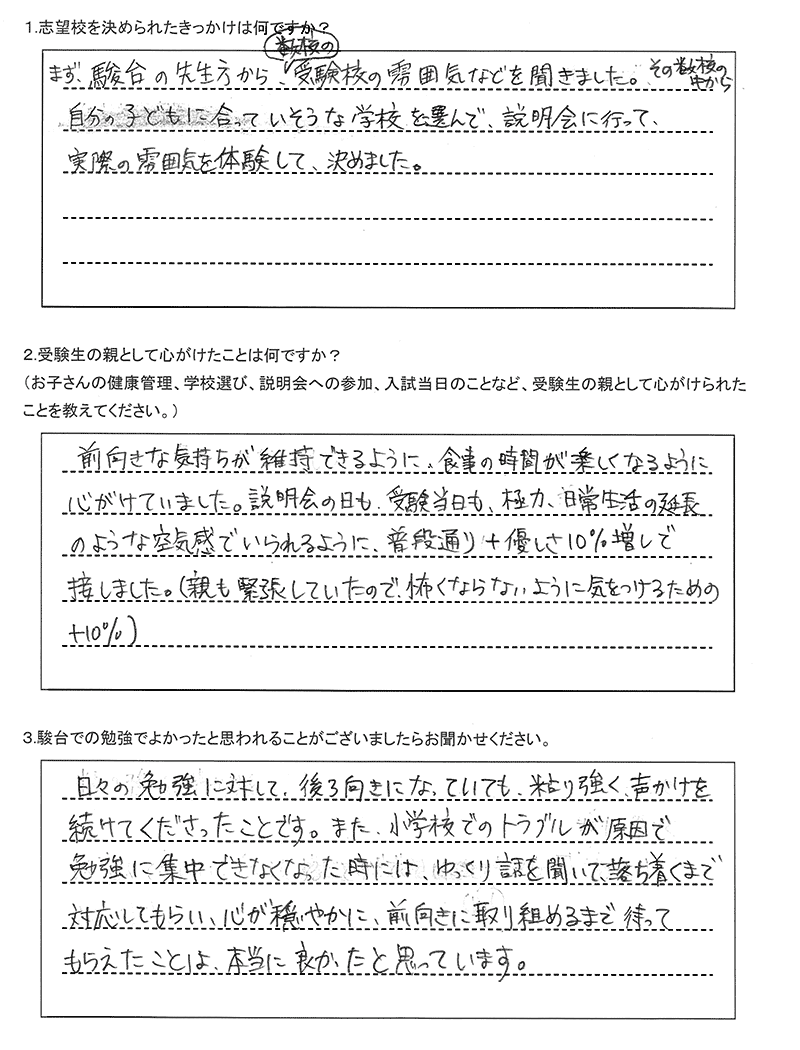 1.志望校を決められたきっかけは何ですか？
まず、駿台の先生方から、数校の受験校の雰囲気などを聞きました。その数校の中から
自分の子どもに合っていそうな学校を選んで、説明会に行って、
実際の雰囲気を体験して、決めました。
2.受験生の親として心がけたことは何ですか？
（お子さんの健康管理、学校選び、説明会への参加、入試当日のことなど、受験生の親として心がけられた
ことを教えてください。）
前向きな気持ちが維持できるように、食事の時間が楽しくなるように
心がけていました。説明会の日も、受験当日も、極力、日常生活の延長
のような空気感でいられるように、普段通り＋優しさ10％増しで
接しました。（親も緊張していたので、怖くならないように気をつけるための
＋10％）
3.駿台での勉強でよかったと思われることがございましたらお聞かせください。
日々の勉強に対して、後ろ向きになっていても、粘り強く、声かけを
続けてくださったことです。また、小学校でのトラブルが原因で
勉強に集中できなくなった時には、ゆっくり話を聞いて、落ち着くまで
対応してもらい、心が穏やかに、前向きに取り組めるまで待って
もらえたことは、本当に良かったと思っています。